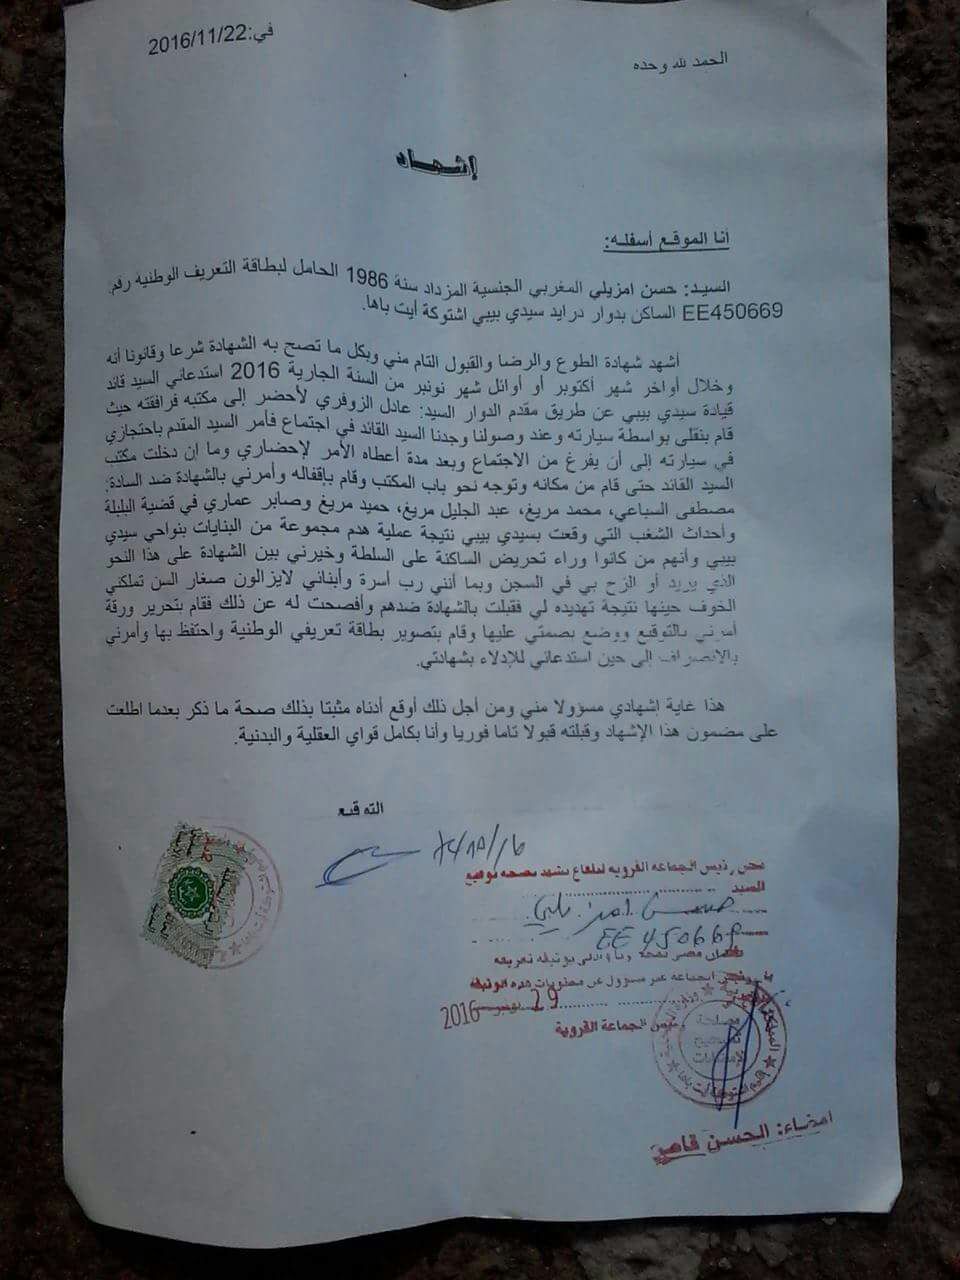 في:2016/11/22
الحمد لله وحده
إشهاد
أنا الموقع أسفله:
السيد: حسن امزيلي المغربي الجنسية المزداد سنة 1986 الحامل لبطاقة التعريف الوطنية رقم.
EE450669 الساكن بدوار درايد سيدي بيبي اشتوكة أيت باها.
أشهد شهادة الطوع والرضا والقبول التام مني وبكل ما تصح به الشهادة شرعا وقانونا أنه
وخلال أواخر شهر أكتوبر أو أوائل شهر نونبر من السنة الجارية 2016 استدعاني السيد قائد
قيادة سيدي بيبي عن طريق مقدم الدوار السيد: عادل الزوفري لأحضر إلى مكتبه فرافقته حيث
قام بنقلي بواسطة سيارته وعند وصولنا وجدنا السيد القائد في اجتماع فأمر السيد المقدم باحتجازي
في سيارته إلى أن يفرغ من الاجتماع وبعد مدة أعطاه الأمر لإحضاري وما إن دخلت مكتب
السيد القائد حتى قام من مكانه وتوجه نحو باب المكتب وقام بإقفاله وأمرني بالشهادة ضد السادة:
مصطفى السباعي، محمد مريغ، عبد الجليل مريغ، حميد مريغ وصابر عماري في قضية البلبلة
وأحداث الشغب التي وقعت بسيدي بيبي نتيجة عملية هدم مجموعة من البنايات بنواحي سيدي
بيبي وأنهم من كانوا وراء تحريض الساكنة على السلطة وخيرني بين الشهادة على هذا النحو
الذي يريد أو الزج بي في السجن وبما أنني رب أسرة وأبنائي لايزالون صغار السن تملكني
الخوف حينها نتيجة تهديده لي فقبلت بالشهادة ضدهم وأفصحت له عن ذلك فقام بتحرير ورقة
أمرني بالتوقيع ووضع بصمتي عليها وقام بتصوير بطاقة تعريفي الوطنية واحتفظ بها وأمرني
بالانصراف إلى حين استدعائي للإدلاء بشهادتي.
هذا غاية إشهادي مسؤولا مني ومن أجل ذلك أوقع أدناه مثبتا بذلك صحة ما ذكر بعدما اطلعت
على مضمون هذا الإشهاد وقبلته قبولا تاما فوريا وأنا بكامل قواي العقلية والبدنية.
التوقيع
رئيس الجماعة القروية يشهد بصحة توقيع
السيد
حسن امزيلي
EE 450669
الجماعة غير مسؤول عن محتويات هذه الوثيقة
29 نونبر 2016
رئيس الجماعة القروية
امضاء: الحسن